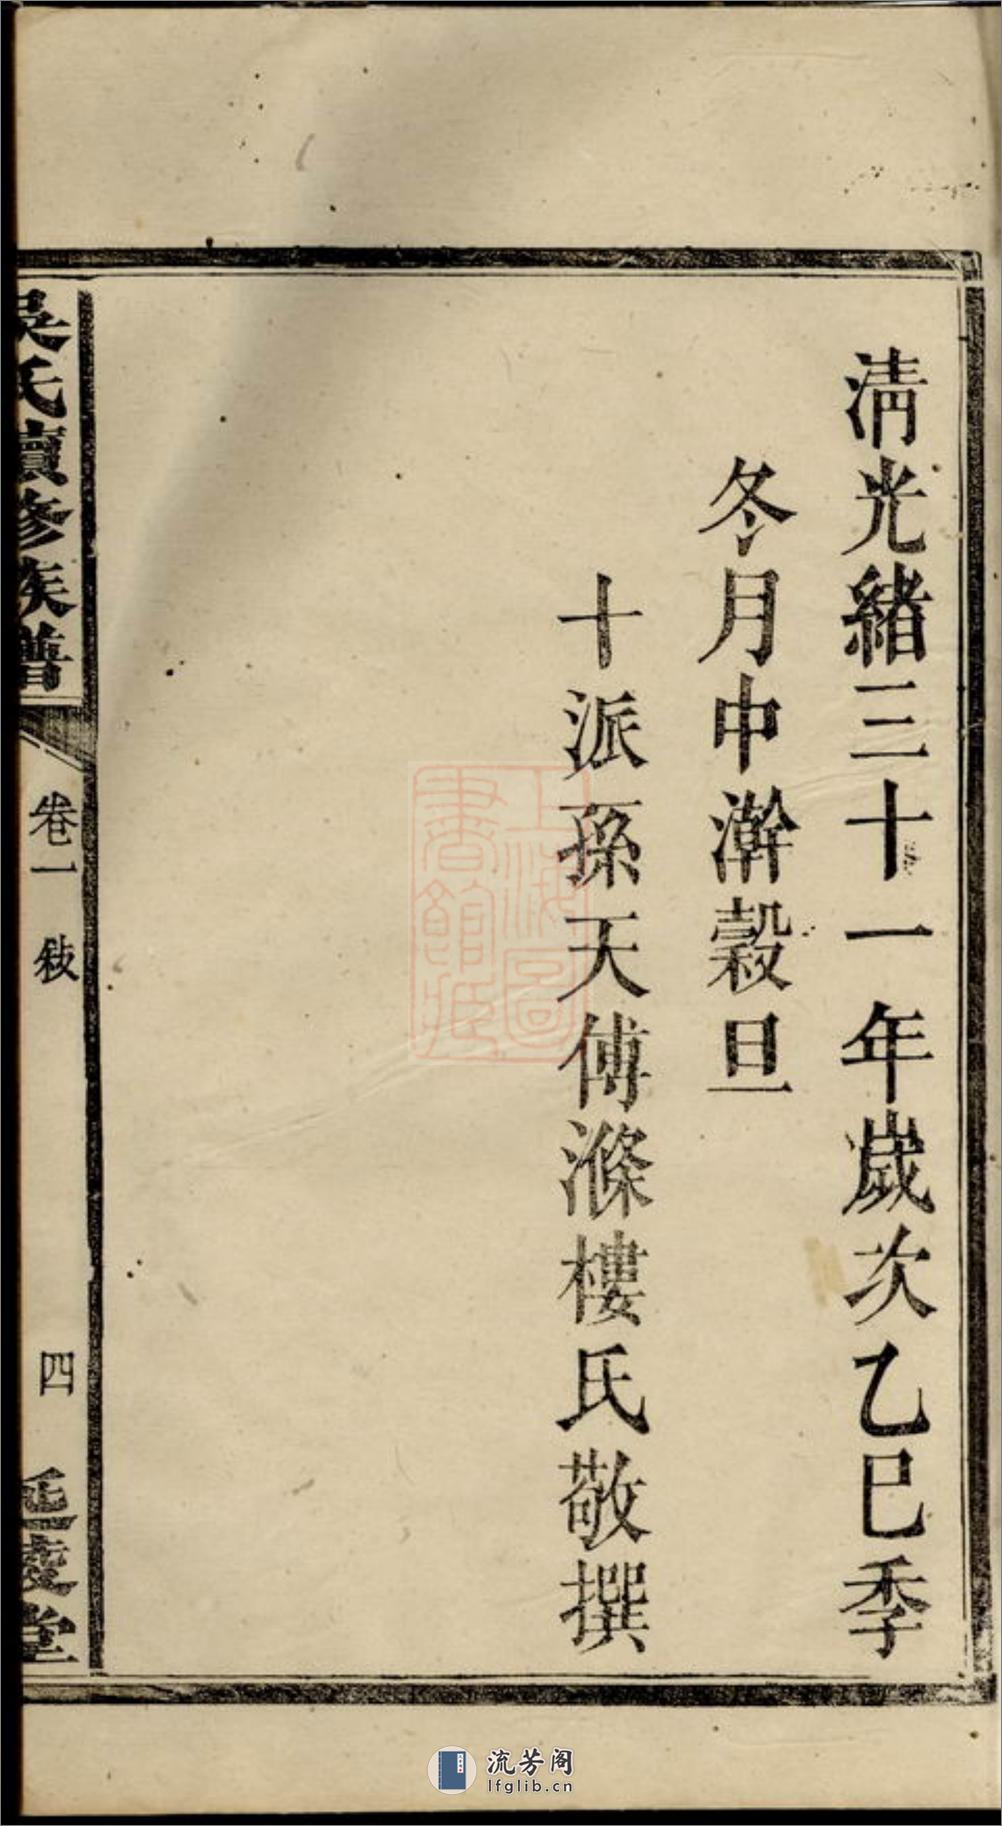 清光緒三十一年歲次乙巳季
冬月中澣穀旦
十派孫天傅滌樓氏敬撰
吳氏續修族譜
卷一
敍
四
延慶堂
上海圖書館藏
流芳阁
lfglib.cn